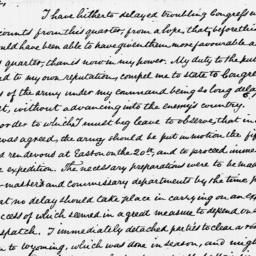 I have hitherto delayed troubling Congress w
counts from this quarter, from a hope, that, before thi
ould have been able to have given them more favourable a
s quarter, than is now in my power. My duty to the pu
d to my own reputation, compel me to state to Congre
s of the army under my command being so long delay
rt, without advancing into the enemy's country.
order to which I must beg leave to observe, that in
was agreed, the army should be put in motion the fi
d rendezvous at Easton on the 20th, and to proceed imme
e expedition. The necessary preparations were to be mad
-master's and commissary departments by the time p
at no delay should take place in carrying on an exp
ccess of which seemed in a great measure to depend on s
spatch. I immediately detached parties to clear a ro
n to Wyoming, which was done in season, and migh